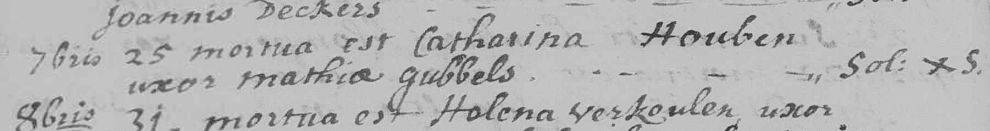 Joannis Deckers
7bris 25 mortua est Catharina Houben
uxor mathiæ gubbels. - - - -,, Sol: x S.
8bris 31. mortua est Helena Verkoulen uxor